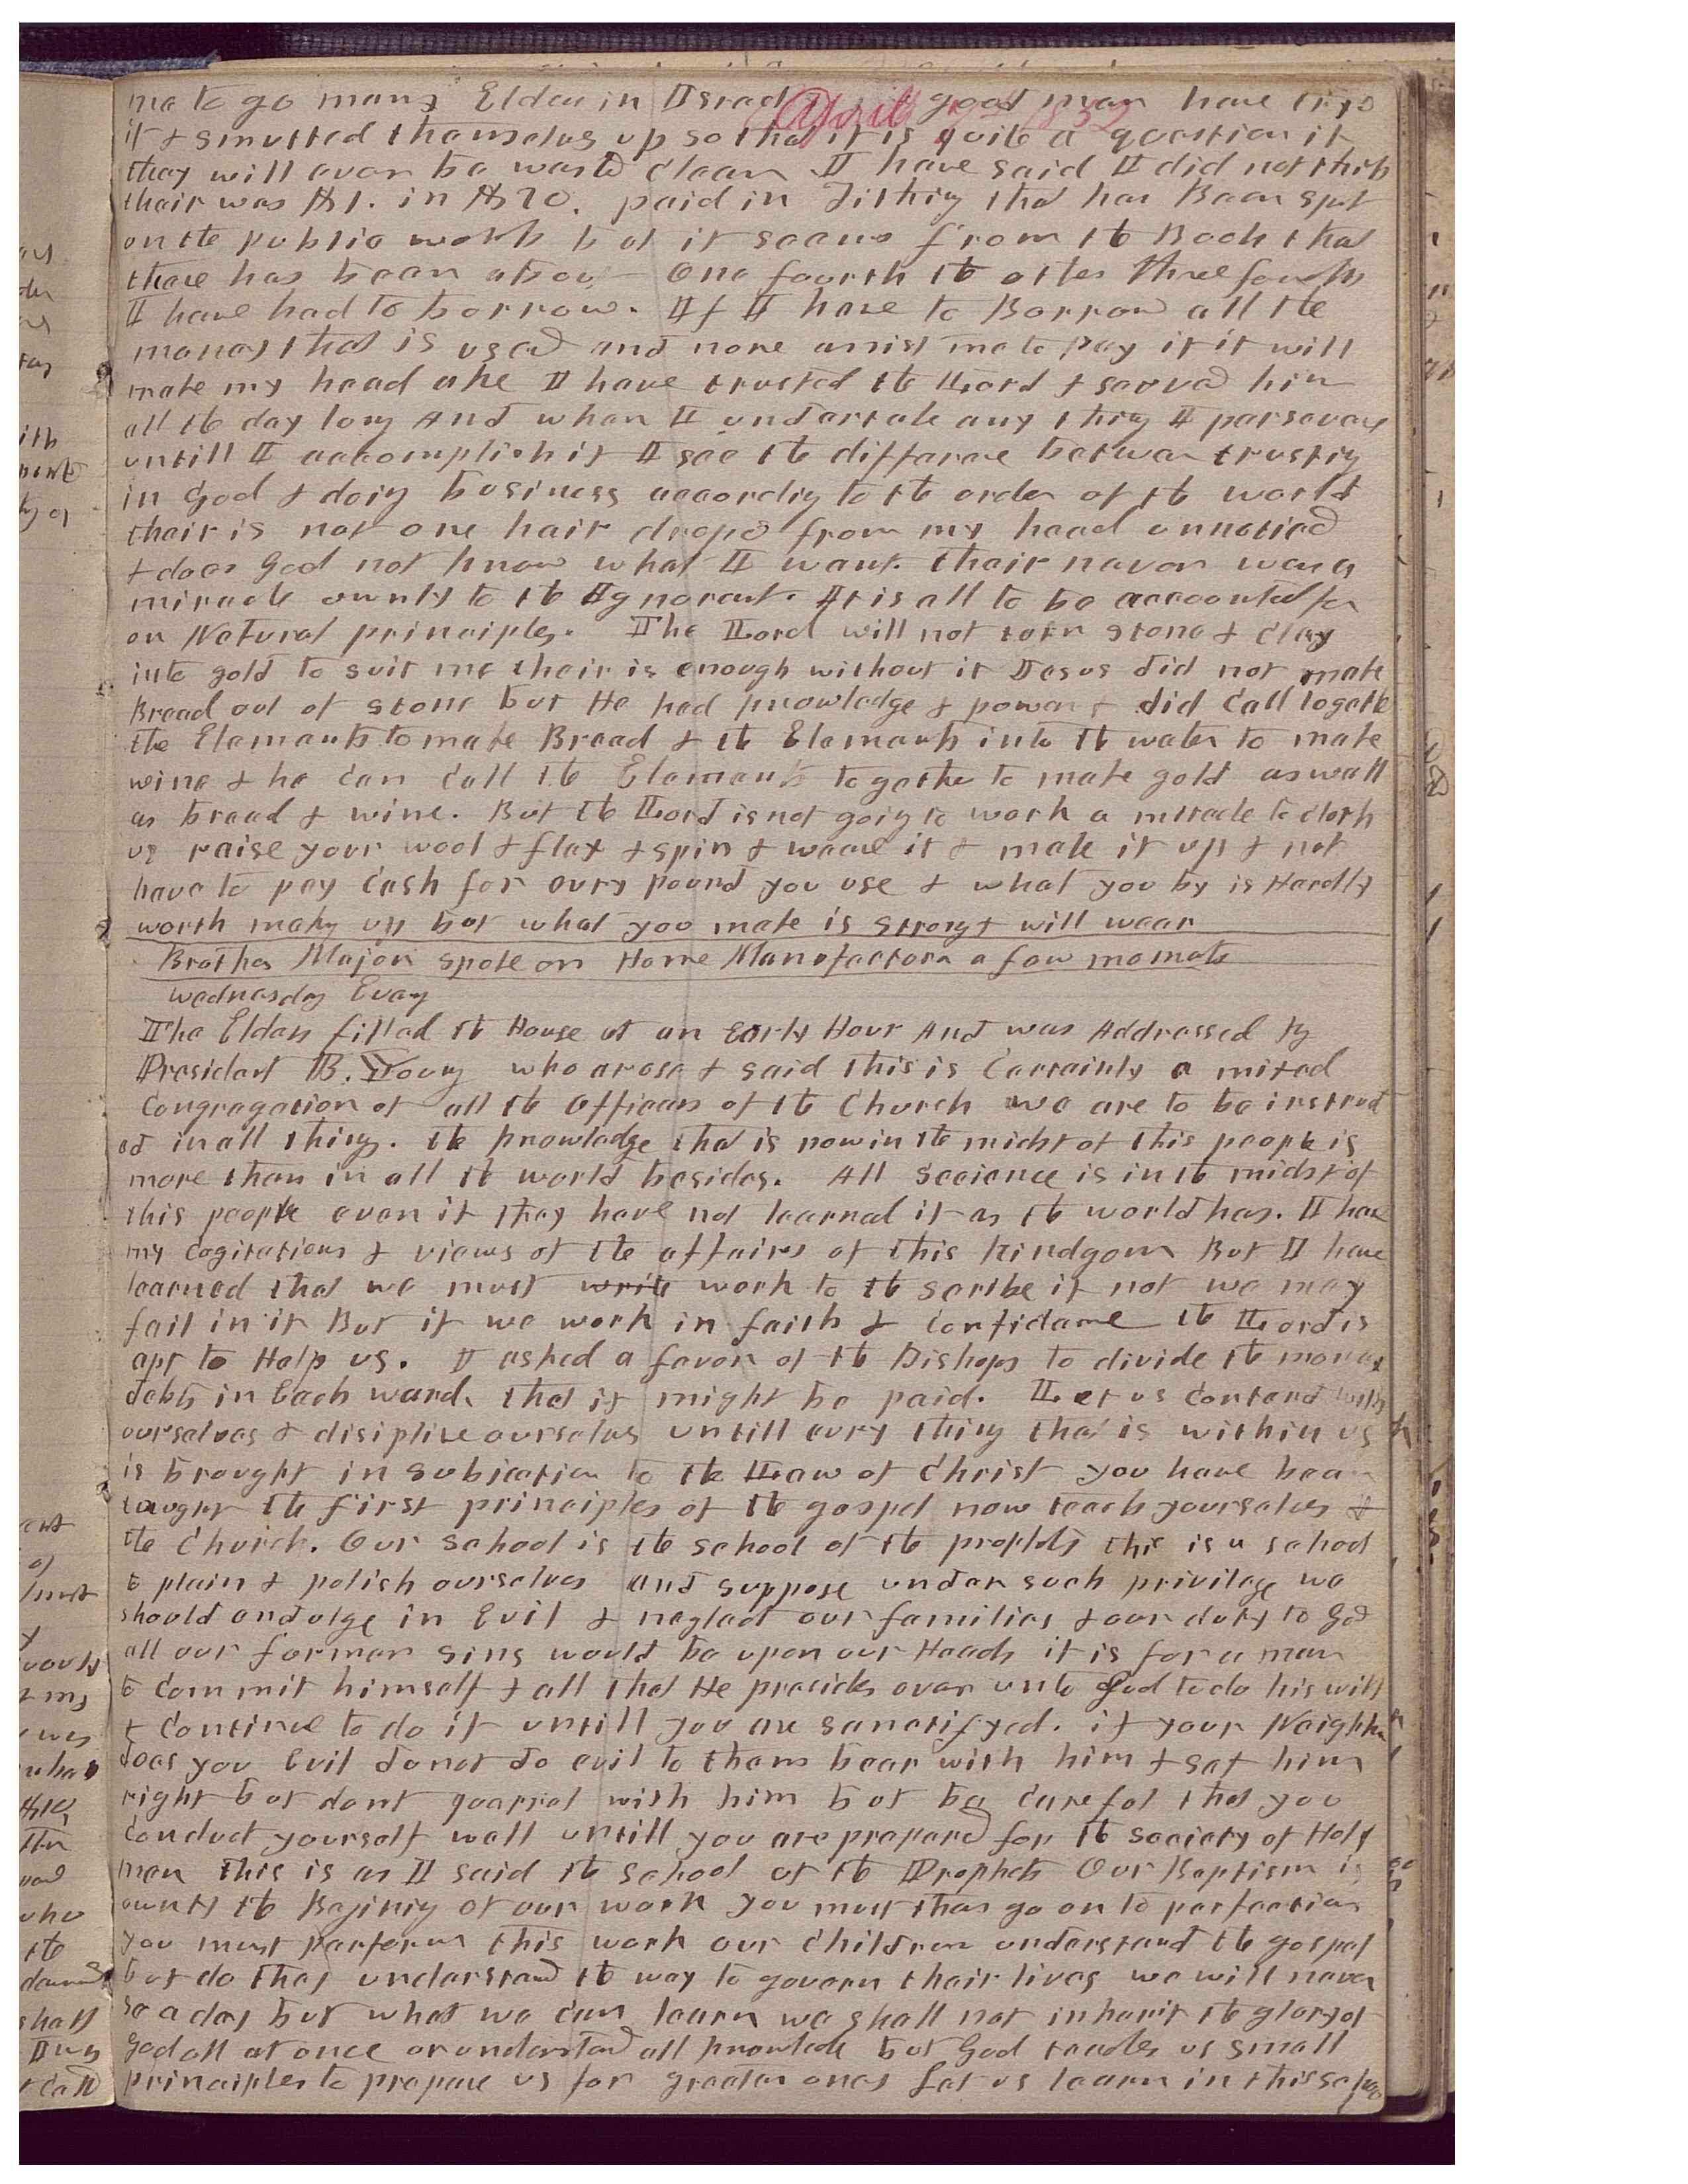 me to go many Elders in Israel good men have tryd
April 1852
it & smutted themselves up so that it is quite a question if
they will ever be washd clean I have said I did not think
thair was $1. in $20. paid in Tithing that has Been spent
on the public works but it seems from the Book that
there has been about One fourth the other three fourths
I have had to borrow. If I have to Borrow all the
money that is used and none assist me to pay it it will
make my head ake I have trusted the Lord & served him
all the day long And when I undertake any thing I persevere
untill I accomplish it I see the differance between trusting
in God & doing business according to the order of the world
thair is not one hair drops from my head unnoticed
& does God not know what I want. thair never was a
miracle ownly to the Ignorant. It is all to be accounted for
on Natural principles. The Lord will not turn stone & clay
into gold to suit me thair is enough without it Jesus did not make
Bread out of stone but He had knowledge & power & did call togethe
the Elements to make Bread & the Elements into the water to make
wine & he can call the Elements togethe to make gold as well
as bread & wine. But the Lord is not going to work a miracle to cloth
us raise your wool & flax & spin & weave it & make it up & not
have to pay cash for evry pound you use & what you by is Hardly
worth making up but what you make is strong & will wear
Brother Major spoke on Home Manufactorn a few moments
Wednesday Eveng
The Elders filled the House at an Early Hour And was Addressed by
President B. Young who arose & said this is Certainly a mixed
Congregation of all the Officers of the Church we are to be instruct
ed in all things. the knowledge that is now in the midst of this people is
more than in all the world besides. All Sceience is in the midst of
this people even if they have not learned it as the world has. I have
my cogitations & views of the affairs of this Kindgom But I have
learned that we must write work to the scribe if not we may
fail in it But if we work in faith & Confidance the Lord is
apt to Help us. I asked a favor of the Bishops to divide the money
debts in Each ward. that it might be paid. Let us contend with
ourselves & disiplire ourselves untill evry thing that is within us
is brought in subication to the Law of Christ you have been
taught the first principles of the gospel now teach yourselves &
the Church. Our school is the school of the prophets this is a school
to plain & polish ourselves And suppose under such privilege we
should endulge in Evil & neglect our families & our duty to God
all our former sins would be upon our Heads it is for a man
to commit himself & all that He presides over unto God to do his will
& continue to do it untill you are sanctifyed. if your Neighber
does you Evil do not do evil to them bear with him & set him
right but dont quarrel with him but be careful that you
conduct yourself well untill you are prepared for the society of Holy
men this is as I said the school of the Prophets Our Baptism is
ownly the Begining of our work you must then go on to perfection
you must perform this work our children understand the gospel
but do they understand the way to govern their lives we will never
se a day but what we can learn we shall not inherit the glory of
God all at once or understand all knowlede but God teaches us small
principles to prepare us for greater ones Let us learn in this